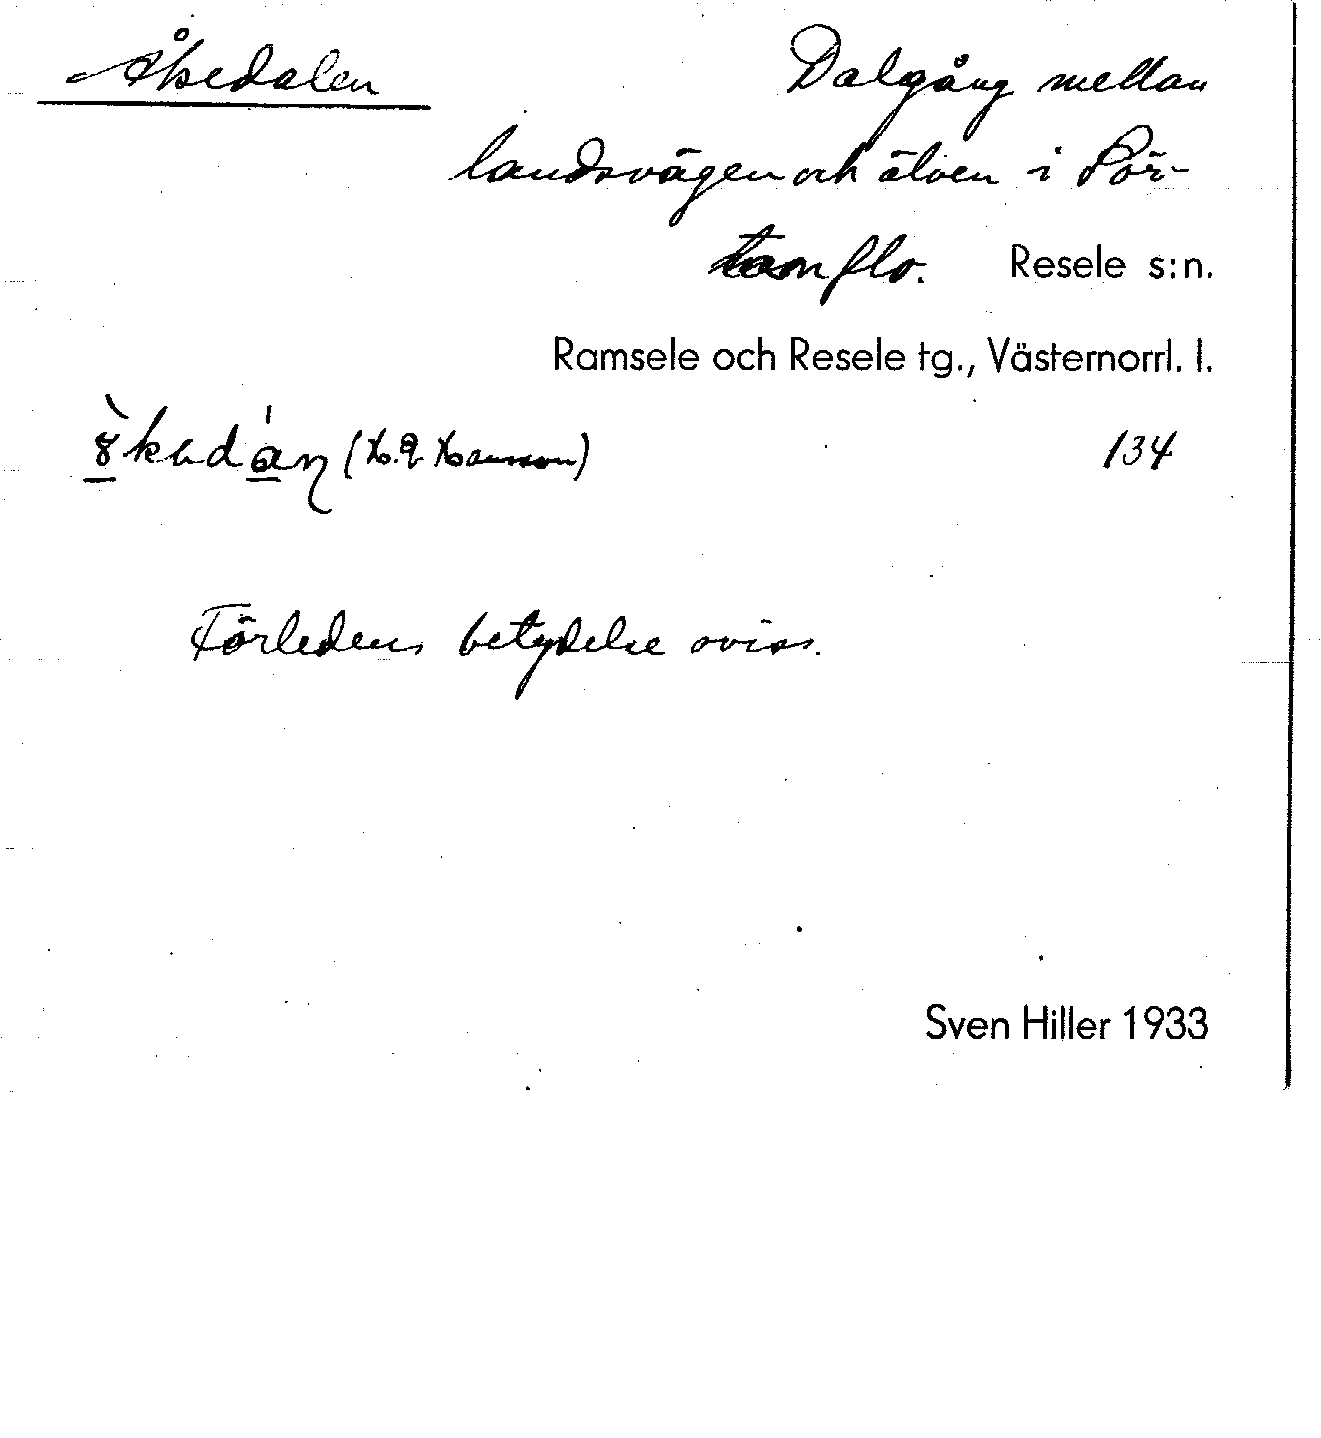 Åkedalen
Dalgång mellan
landsvägen och älven i Pör-
tomflo. Resele s:n.
Ramsele och Resele tg., Västernorrl. l.
134
Förledens betydelse oviss.
Sven Hiller 1933